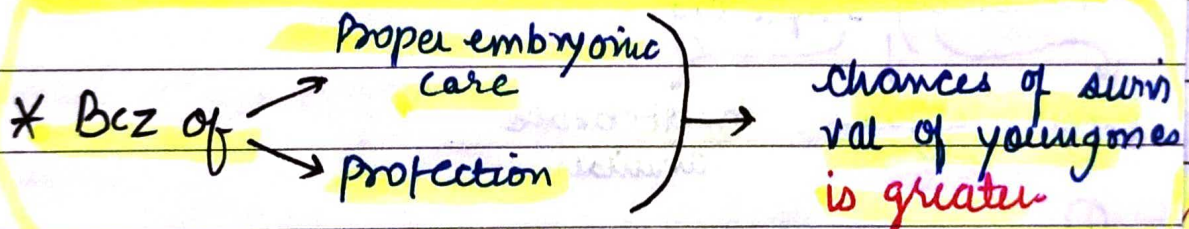 Proper embryonic
care
* Bcz of
protection
chances of survi
val of youngones
is greater